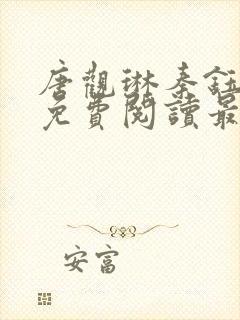 唐觀琳秦鈺
免費閱讀最
安富